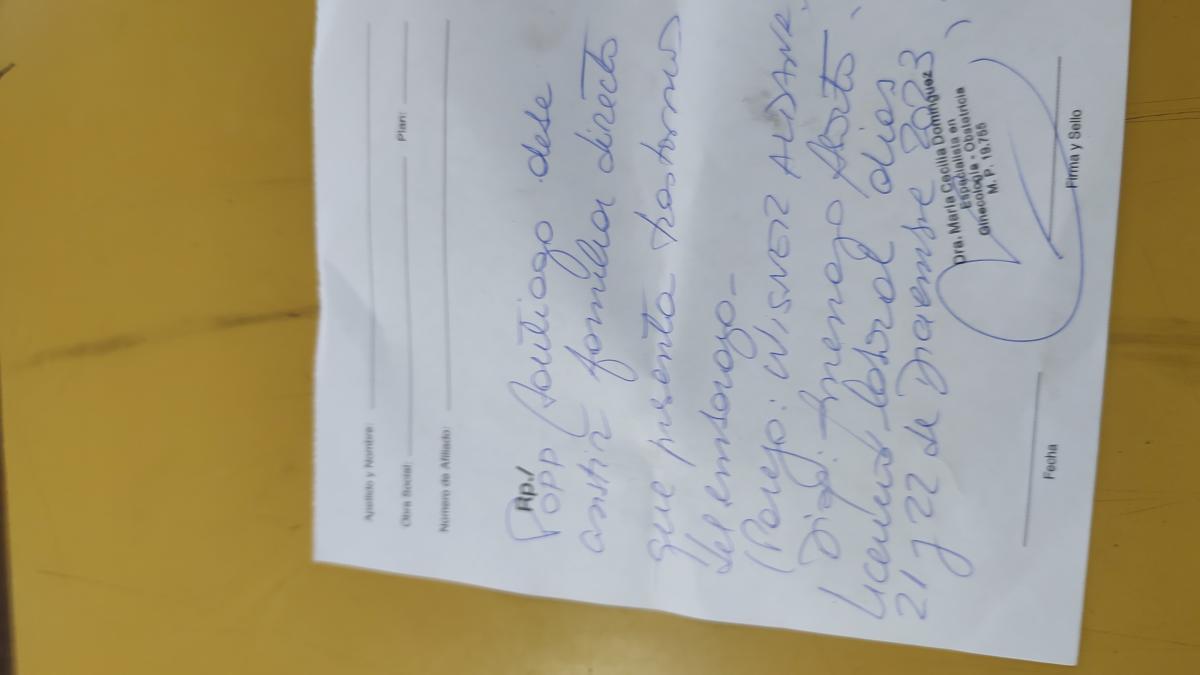 Apellido y Nombre:
Obra Social: Plan:
Número de Afiliado:
Rp./
POPP Santiago debe
asistir familiar directo
que presenta trastornos
del embarazo.-
(Pareja: WISNER
Diag: Amenaza Aborto.
Licencia laboral días
21 y 22 de Diciembre 2023
Dra. María Cecilia Domínguez
Especialista en
Ginecología - Obstetricia
M. P. 19.755
Fecha Firma y Sello